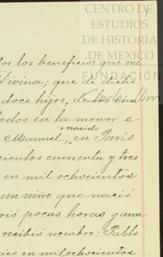 CENTRO DE
ESTUDIOS
DE HISTORIA
DE MEXICO
FUNDACIÓN
los los beneficios que me
Divina; que de dichos
doce hijos, de los cua
todos en la menor e
Manuel, en Paris
cientos cuarenta y tres
en mil ochocientos
un niño que nació
vivió pocas horas y aun
recibió nombre. Pablo
en mil ochocientos